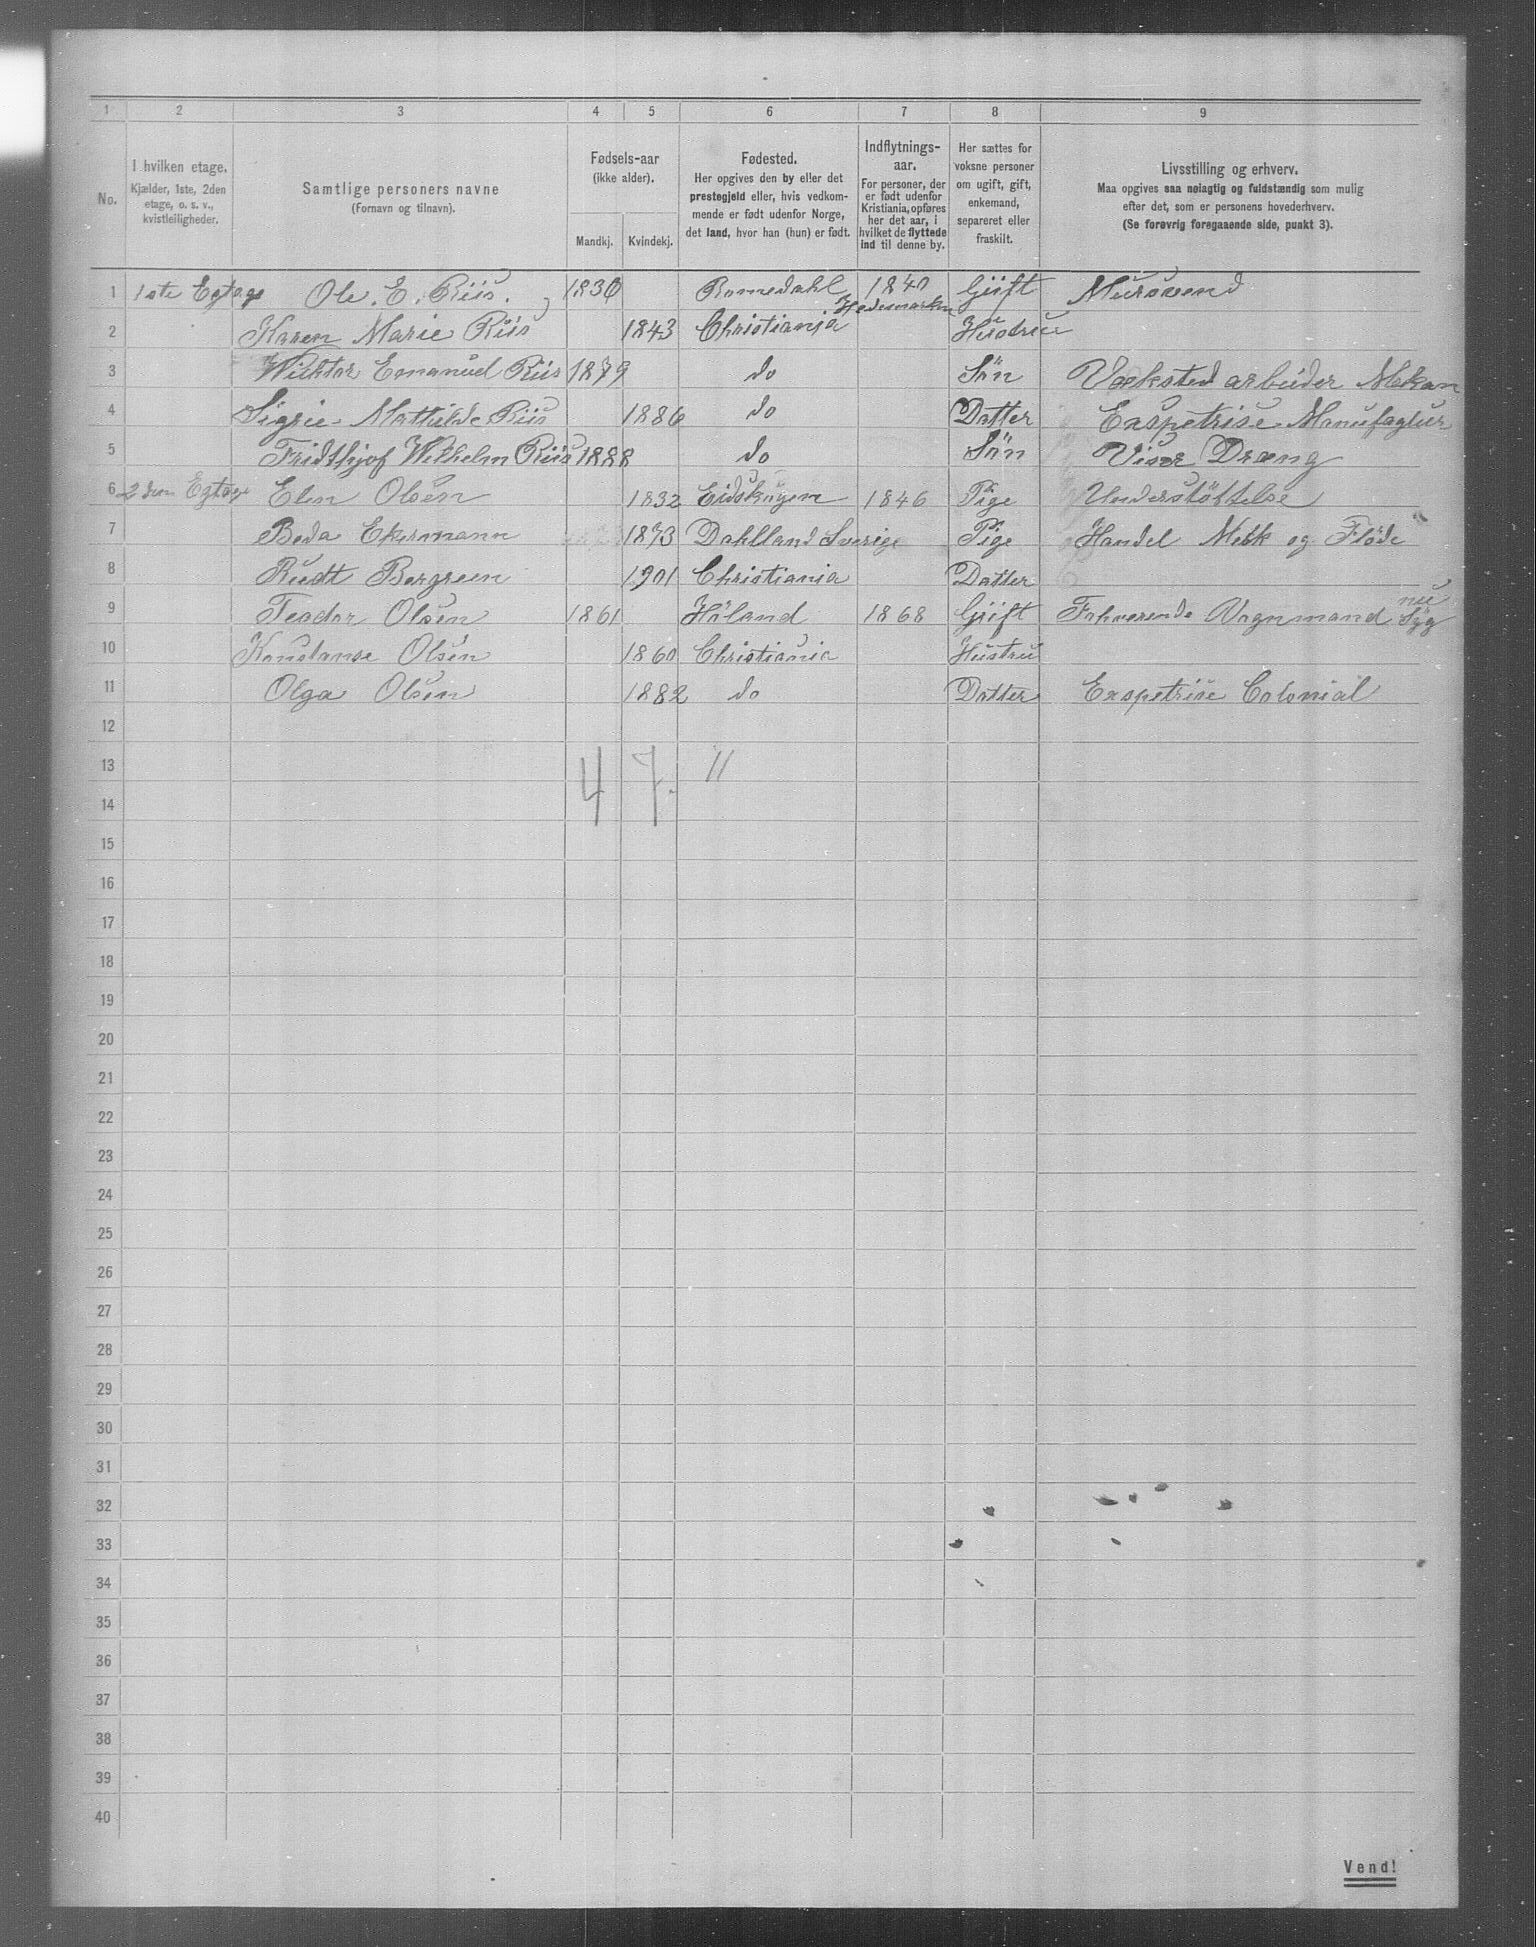 1 2 3 4 5 6 7 8 9
No.
I hvilken etage.
Kjælder, 1ste, 2den
etage, o. s. v.,
kvistleiligheder.
Samtlige personers navne
(Fornavn og tilnavn).
Fødsels-aar
(ikke alder).
Mandkj. Kvindekj.
Fødested.
Her opgives den by eller det
prestegjeld eller, hvis vedkom-
mende er født udenfor Norge,
det land, hvor han (hun) er født.
Indflytnings-
aar.
For personer, der
er født udenfor
Kristiania, opføres
her det aar, i
hvilket de flyttede
ind til denne by.
Her sættes for
voksne personer
om ugift, gift,
enkemand,
separeret eller
fraskilt.
Livsstilling og erhverv.
Maa opgives saa nøiagtig og fuldstændig som mulig
efter det, som er personens hovederhverv.
(Se forøvrig foregaaende side, punkt 3).
1 1ste Egtage Ole. E. Riis. 1830 Romedahl Hedemarken 1840 Gift Mursvend
2 Karen Marie Riis 1843 Christiania Hustrue
3 Wicktor Emanuel Riis 1879 do Sön Værksted arbeider Mekan
4 Sigrie Mathilde Riis 1886 do Datter Exspetrise Manufagtur
5 Fridthjof Wilhelm Riis 1888 do Sön Viser Dræng
6 2den Egtage Elen Olsen 1832 Eidskogen 1846 Pige Understöttelse
7 Beda Ekermann 1873 Dahlland Sverige Pige Handel Melk og Flöde
8 Ruedt Bergreen 1901 Christiania Datter
9 Teodor Olsen 1861 Höland 1868 Gift Fohverende Vognmand nu Syg
10 Konstanse Olsen 1860 Christiania Hustru
11 Olga Olsen 1882 do Datter Exspetrise Colonial
12
13 4 7. 11
14
15
16
17
18
19
20
21
22
23
24
25
26
27
28
29
30
31
32
33
34
35
36
37
38
39
40
Vend!